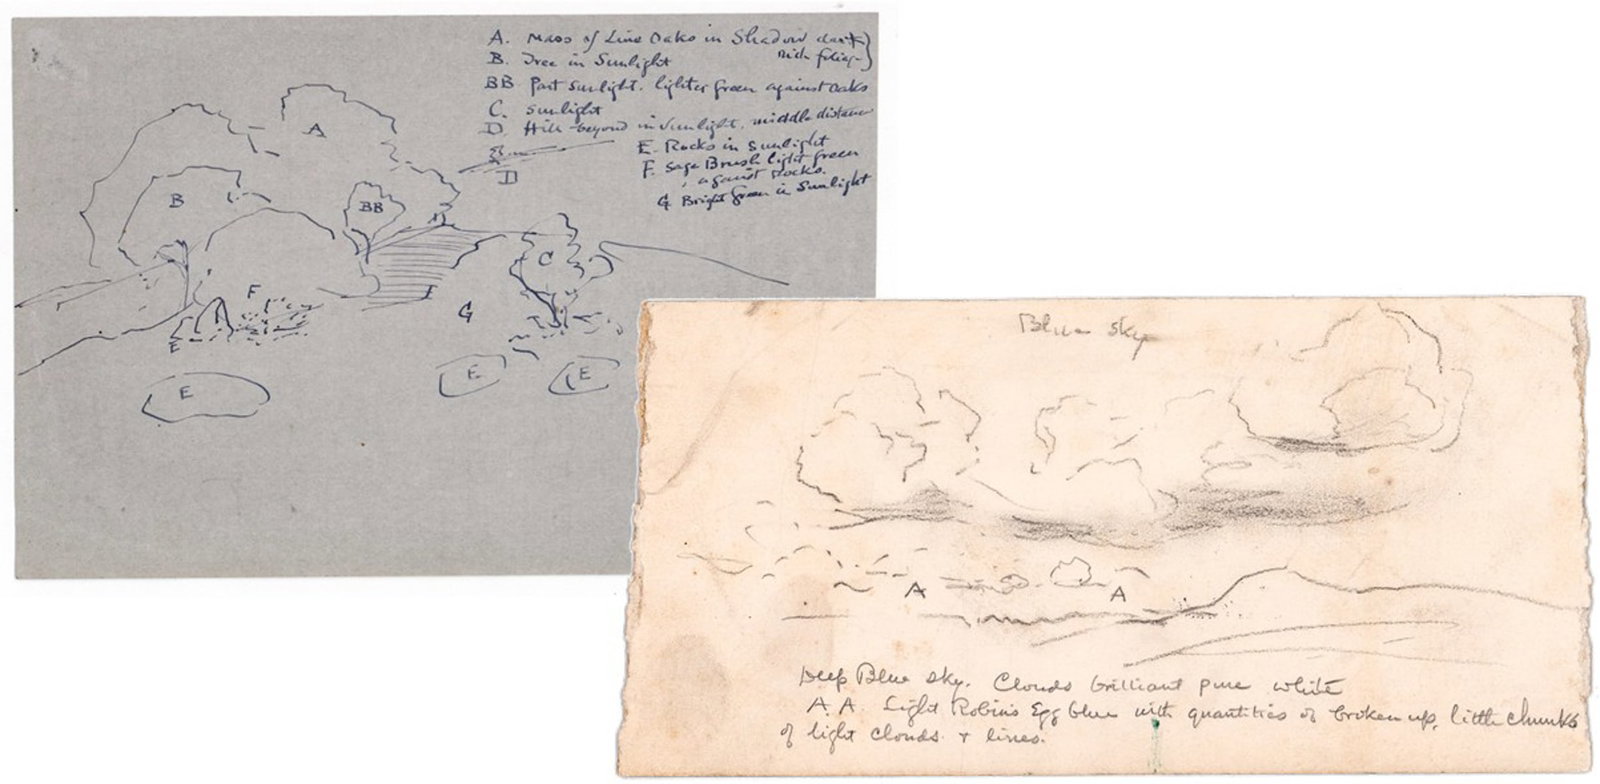 A. Mass of Live Oaks in Shadow dark
rich foliage
B. Tree in Sunlight
BB Part sunlight. lighter green against oaks
C. Sunlight
D. Hill beyond in sunlight. middle distance
E. Rocks in Sunlight
F. Sage Brush light green
against rocks.
G Bright green in Sunlight
A
D
B
BB
C
F
G
E
E
E
E
Blue sky
A
A
Deep Blue sky. Clouds brilliant pure white
A.A. Light Robins Egg blue with quantities of broken up, little chunks
of light clouds & lines.